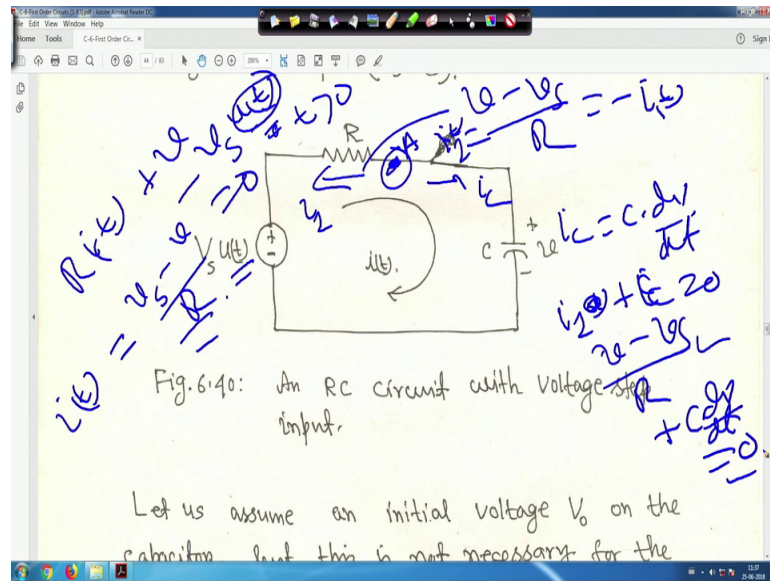 C-6-First Order Circuits [1-83].pdf - Adobe Acrobat Reader DC
File Edit View Window Help
Home Tools C-6-First Order Cir... ×
Sign
44 / 83
200%
R i(t) + v
- v_s u(t) t>0
= 0
i(t) = v_s - v / R
R
A
i_2 = v - v_s / R = - i(t)
i_2
i_c
V_s u(t)
+
-
i(t).
C
+
v
-
i_c = C. dv/dt
i_2 + i_c = 0
v - v_s / R
+ C dv/dt
= 0
Fig. 6.40: An RC circuit with voltage step
input.
Let us assume an initial voltage V_0 on the
capacitor, but this is not necessary for the
11:37
25-06-2018